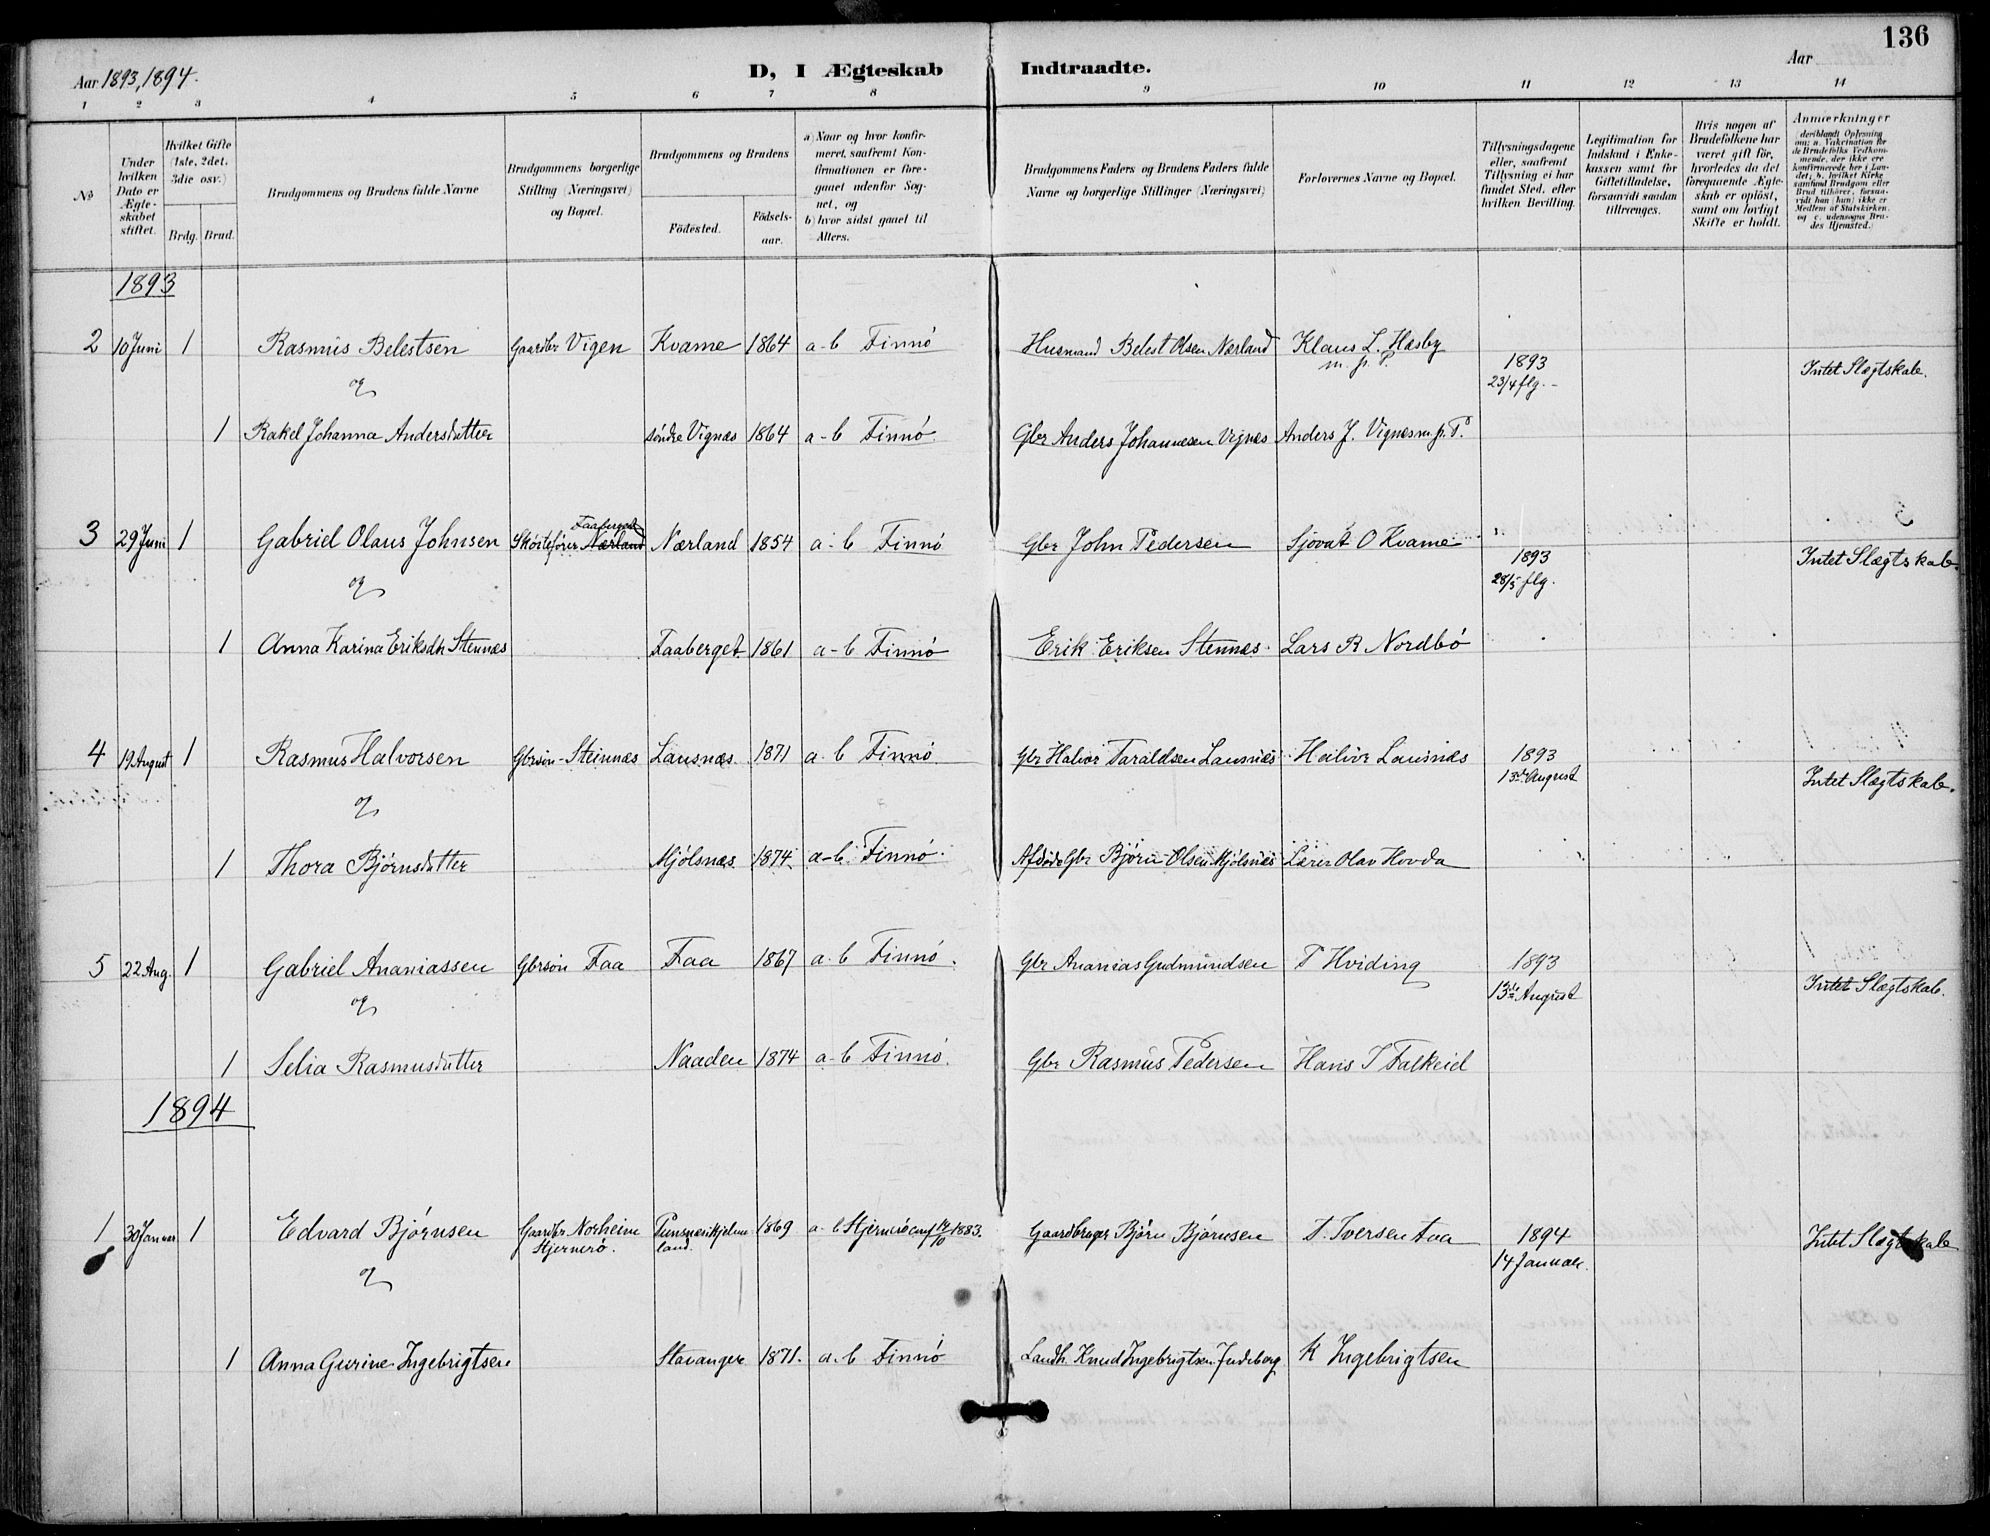 136
Aar 1893, 1894.
D, I Ægteskab Indtraadte.
Aar
1 2 3 4 5 6 7 8 9 10 11 12 13 14
No
Under hvilken Dato er Ægteskabet stiftet.
Hvilket Gifte (1ste, 2det, 3die osv.)
Brdg. Brud.
Brudgommens og Brudens fulde Navne
Brudgommens borgerlige Stilling (Næringsvei) og Bopæl.
Brudgommens og Brudens
Födested. Födsels-aar.
a) Naar og hvor konfir-
meret, saafremt Kon-
firmationen er fore-
gaaet udenfor Sog-
net, og
b) hvor sidst gaaet til
Alters.
Brudgommens Faders og Brudens Faders fulde
Navne og borgerlige Stillinger (Næringsvei)
Forlovernes Navne og Bopæl.
Tillysningsdagene
eller, saafremt
Tillysning ei har
fundet Sted, efter
hvilken Bevilling.
Legitimation for
Indskud i Enke-
kassen samt for
Giftetilladelse,
forsaavidt saadan
tiltrænges.
Hvis nogen af
Brudefolkene har
været gift för,
hvorledes da det
foregaaende Ægte-
skab er oplöst,
samt om lovligt
Skifte er holdt.
Anmærkninger
(deriblandt Oplysning
om: a. Vakcination for
de Brudefolks Vedkom-
mende, der ikke ere
konfirmerede her i Lan-
det; b. hvilket Kirke
samfund Brudgom eller
Brud tilhører, forsaa-
vidt han (hun) ikke er
Medlem af Statskirken.
og c. udensogns Bru-
des Hjemsted.)
1893
2 10 Juni 1 Rasmus Belestsen Gaardbr Vigen Kvame 1864 a-b Finnö Husmand Belest Olsen Nærland Klaus L. Hæsby
m. p. P.
1893
23/4 flg. -
Intet Slægtskab.
og
1 Rakel Johanna Andersdatter söndre Vignæs 1864 a-b Finnö. Gbr Anders Johannesen Vignæs Anders J. Vignæs m. p. P.
3 29 Juni 1 Gabriel Olaus Johnsen Sköitefører Nærland Faaberget Nærland 1854 a-b Finnö Gbr John Pedersen Sjovat O Kvame
1893
28/5 flg.
Intet Slægtskab.
og
1 Anna Karina Eriksdtr Stennæs Faaberget 1861 a-b Finnö Erik Eriksen Stennæs. Lars R Nordbö
4 19 August 1 Rasmus Halvorsen Gbrsön Steinnæs Lausnæs 1871 a-b Finnö Gbr Halvor Taraldsen Lausnæs Halvor Lausnæs
1893
13de August
Intet Slægtskab.
og
1 Thora Bjørnsdatter Mjölsnæs 1874 a-b Finnö. Afdöde Gbr Björn Olsen Mjölsnæs Lærer Olav Hovda
5 22 Aug. 1 Gabriel Ananiassen Gbrsön Faa Faa 1867 a-b Finnö. Gbr Ananias Gudmundsen T Hviding
1893
13de August
Intet Slægtskab.
og
1 Selia Rasmusdatter Naaden 1874 a-b Finnö. Gbr Rasmus Pedersen Hans T Falkeid
1894
1 30 Januar 1 Edvard Bjørnsen Gaardbr Norheim
Stjernerö.
1869 a-b Stjernerö conf 14/10 1883. Gaardbruger Björn Björnsen T. Iversen Aaa
1894
14 Januar.
Intet Slægtskab
og
1 Anna Gurine Ingebrigtsen Stavanger 1871. a-b Finnö Landh. Knud Ingebrigtsen Judeberg K Ingebrigtsen